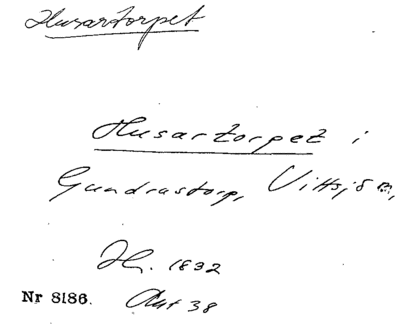 Husartorpet
Husartorpet i
Gundrastorp, Vittsjö sn,
H. 1832
Nr 8186. Akt 38